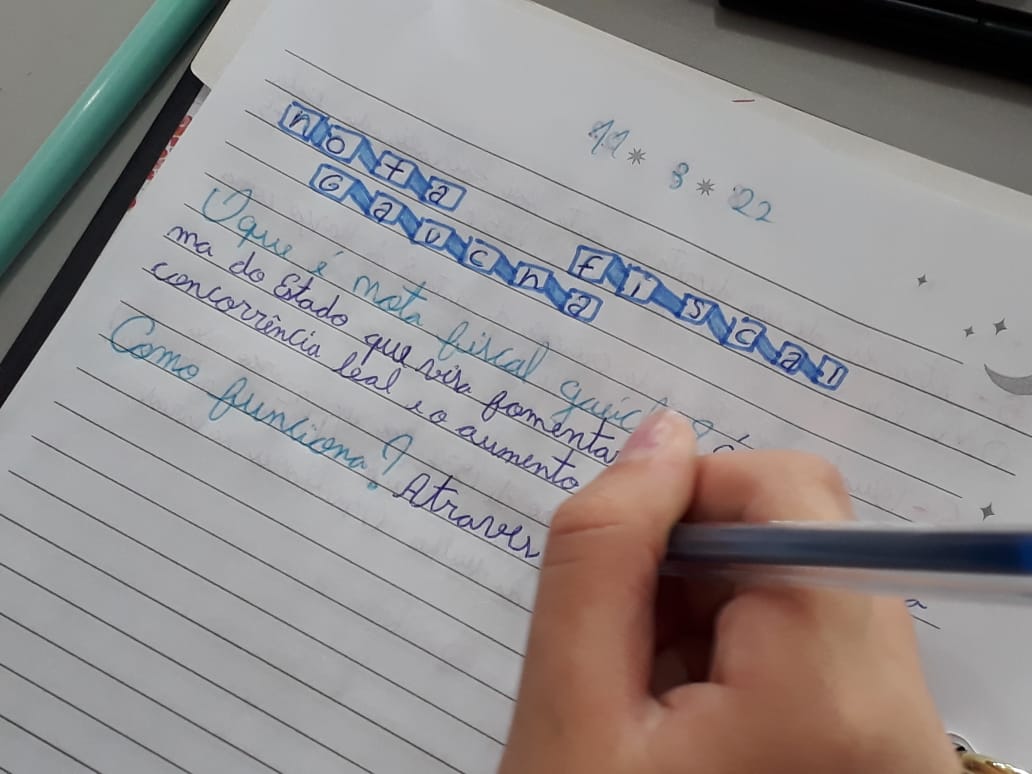 11 * 8 * 22
nota fiscal
Gaucha
O que é nota fiscal
ma do Estado que visa fomenta
concorrência leal e o aumento
Como funciona? Atraves